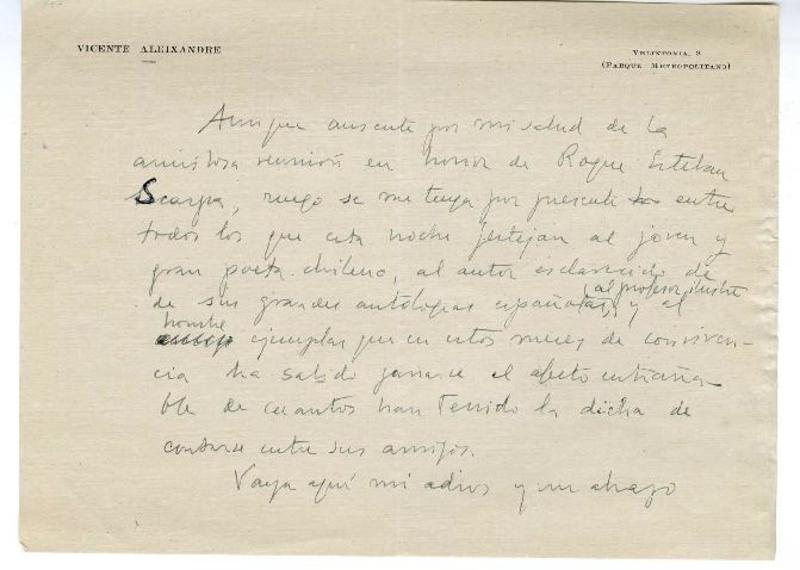 VICENTE ALEIXANDRE
VELINTONIA, 3
(PARQUE METROPOLITANO)
Aunque ausente por mi salud de la
amistosa reunión en honor de Roque Esteban
Scarpa, ruego se me tenga por presente entre
todos los que esta noche festejan al joven y
gran poeta chileno, al autor esclarecido de
de sus grandes antologías españolas, al profesor ilustre y al
hombre ejemplar que en estos meses de conviven-
cia ha sabido ganarse el afecto entraña-
ble de cuantos han tenido la dicha de
contarse entre sus amigos.
Vaya aquí mi adios y un abrazo